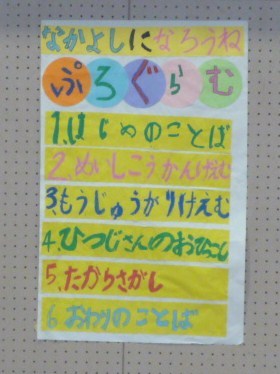 なかよしになろうね
ぷろぐらむ
1.はじめのことば
2.めいしこうかんげえむ
3.もうじゅうがりげえむ
4.ひつじさんのおひっこし
5.たからさがし
6.おわりのことば